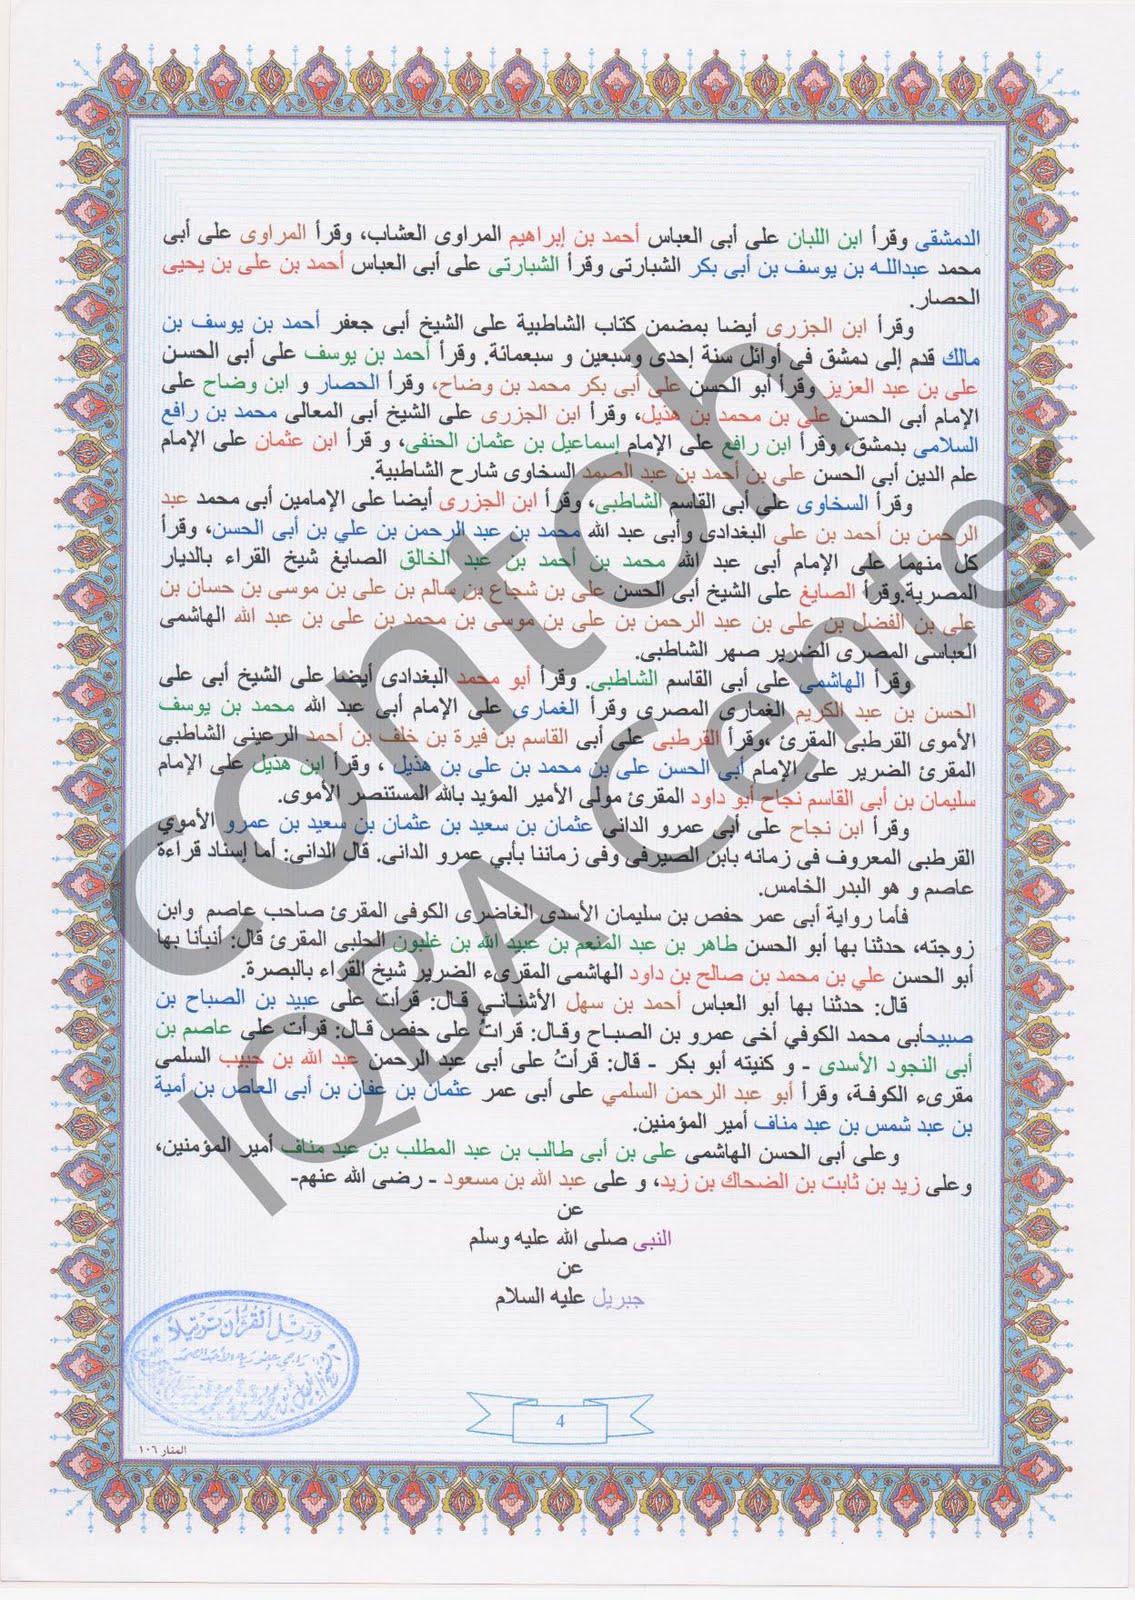 الدمشقى وقرأ ابن اللبان على أبى العباس أحمد بن إبراهيم المراوى العشاب، وقرأ المراوى على أبى
محمد عبدالله بن يوسف بن أبى بكر الشبارتى وقرأ الشبارتى على أبى العباس أحمد بن على بن يحيى
الحصار.
وقرأ ابن الجزرى أيضا بمضمن كتاب الشاطبية على الشيخ أبى جعفر أحمد بن يوسف بن
مالك قدم إلى دمشق فى أوائل سنة إحدى وسبعين و سبعمائة. وقرأ أحمد بن يوسف على أبى الحسن
على بن عبد العزيز وقرأ أبو الحسن على أبى بكر محمد بن وضاح، وقرأ الحصار و ابن وضاح على
الإمام أبى الحسن على بن محمد بن هذيل، وقرأ ابن الجزرى على الشيخ أبى المعالى محمد بن رافع
السلامى بدمشق، وقرأ ابن رافع على الإمام اسماعيل بن عثمان الحنفى، و قرأ ابن عثمان على الإمام
علم الدين أبى الحسن على بن أحمد بن عبد الصمد السخاوى شارح الشاطبية.
وقرأ السخاوى على أبى القاسم الشاطبى، وقرأ ابن الجزرى أيضا على الإمامين أبى محمد عبد
الرحمن بن أحمد بن على البغدادى وأبى عبد الله محمد بن عبد الرحمن بن علي بن أبى الحسن، وقرأ
كل منهما على الإمام أبى عبد الله محمد بن أحمد بن عبد الخالق الصايغ شيخ القراء بالديار
المصرية.وقرأ الصايغ على الشيخ أبى الحسن على بن شجاع بن سالم بن على بن موسى بن حسان بن
على بن الفضل بن على بن عبد الرحمن بن على بن موسى بن محمد بن على بن عبد الله الهاشمى
العباسى المصرى الضرير صهر الشاطبى.
وقرأ الهاشمى على أبى القاسم الشاطبى. وقرأ أبو محمد البغدادى أيضا على الشيخ أبى على
الحسن بن عبد الكريم الغمارى المصرى وقرأ الغمارى على الإمام أبى عبد الله محمد بن يوسف
الأموى القرطبى المقرئ ،وقرأ القرطبى على أبى القاسم بن فيرة بن خلف بن أحمد الرعينى الشاطبى
المقرئ الضرير على الإمام أبى الحسن على بن محمد بن على بن هذيل ، وقرأ ابن هذيل على الإمام
سليمان بن أبى القاسم نجاح أبو داود المقرئ مولى الأمير المؤيد بالله المستنصر الأموى.
وقرأ ابن نجاح على أبى عمرو الدانى عثمان بن سعيد بن عثمان بن سعيد بن عمرو الأموي
القرطبى المعروف فى زمانه بابن الصيرفى وفى زماننا بأبي عمرو الدانى. قال الدانى: أما إسناد قراءة
عاصم و هو البدر الخامس.
فأما رواية أبى عمر حفص بن سليمان الأسدى الغاضرى الكوفى المقرئ صاحب عاصم وابن
زوجته، حدثنا بها أبو الحسن طاهر بن عبد المنعم بن عبيد الله بن غلبون الحلبى المقرئ قال: أنبأنا بها
أبو الحسن علي بن محمد بن صالح بن داود الهاشمى المقرىء الضرير شيخ القراء بالبصرة.
قال: حدثنا بها أبو العباس أحمد بن سهل الأشناني قال: قرأت على عبيد بن الصباح بن
صبيحأبى محمد الكوفي أخى عمرو بن الصباح وقال: قرأتُ على حفص قال: قرأت على عاصم بن
أبى النجود الأسدى - و كنيته أبو بكر - قال: قرأتُ على أبى عبد الرحمن عبد الله بن حبيب السلمى
مقرىء الكوفة، وقرأ أبو عبد الرحمن السلمي على أبى عمر عثمان بن عفان بن أبى العاص بن أمية
بن عبد شمس بن عبد مناف أمير المؤمنين.
وعلى أبى الحسن الهاشمى على بن أبى طالب بن عبد المطلب بن عبد مناف أمير المؤمنين،
وعلى زيد بن ثابت بن الضحاك بن زيد، و على عبد الله بن مسعود - رضى الله عنهم-
عن
النبى صلى الله عليه وسلم
عن
جبريل عليه السلام
ورتل القرآن ترتيلا
4
المنار ١٠٦
Contoh
IQBA Center